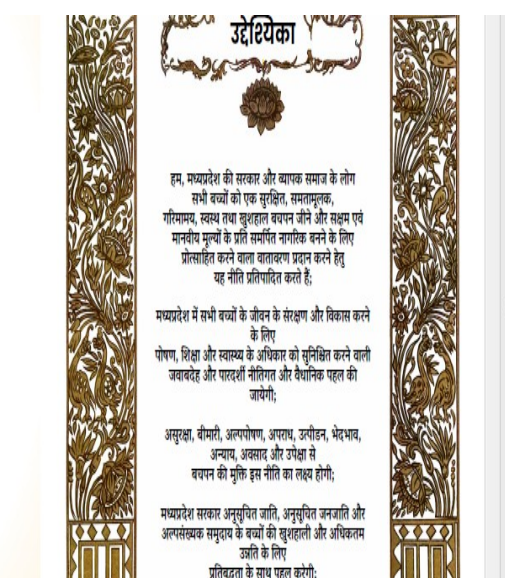 उद्देश्यिका
हम, मध्यप्रदेश की सरकार और व्यापक समाज के लोग
सभी बच्चों को एक सुरक्षित, समतामूलक,
गरिमामय, स्वस्थ तथा खुशहाल बचपन जीने और सक्षम एवं
मानवीय मूल्यों के प्रति समर्पित नागरिक बनने के लिए
प्रोत्साहित करने वाला वातावरण प्रदान करने हेतु
यह नीति प्रतिपादित करते हैं;
मध्यप्रदेश में सभी बच्चों के जीवन के संरक्षण और विकास करने
के लिए
पोषण, शिक्षा और स्वास्थ्य के अधिकार को सुनिश्चित करने वाली
जवाबदेह और पारदर्शी नीतिगत और वैधानिक पहल की
जायेगी;
असुरक्षा, बीमारी, अल्पपोषण, अपराध, उत्पीडन, भेदभाव,
अन्याय, अवसाद और उपेक्षा से
बचपन की मुक्ति इस नीति का लक्ष्य होगी;
मध्यप्रदेश सरकार अनुसूचित जाति, अनुसूचित जनजाति और
अल्पसंख्यक समुदाय के बच्चों की खुशहाली और अधिकतम
उन्नति के लिए
प्रतिबद्धता के साथ पहल करेगी;